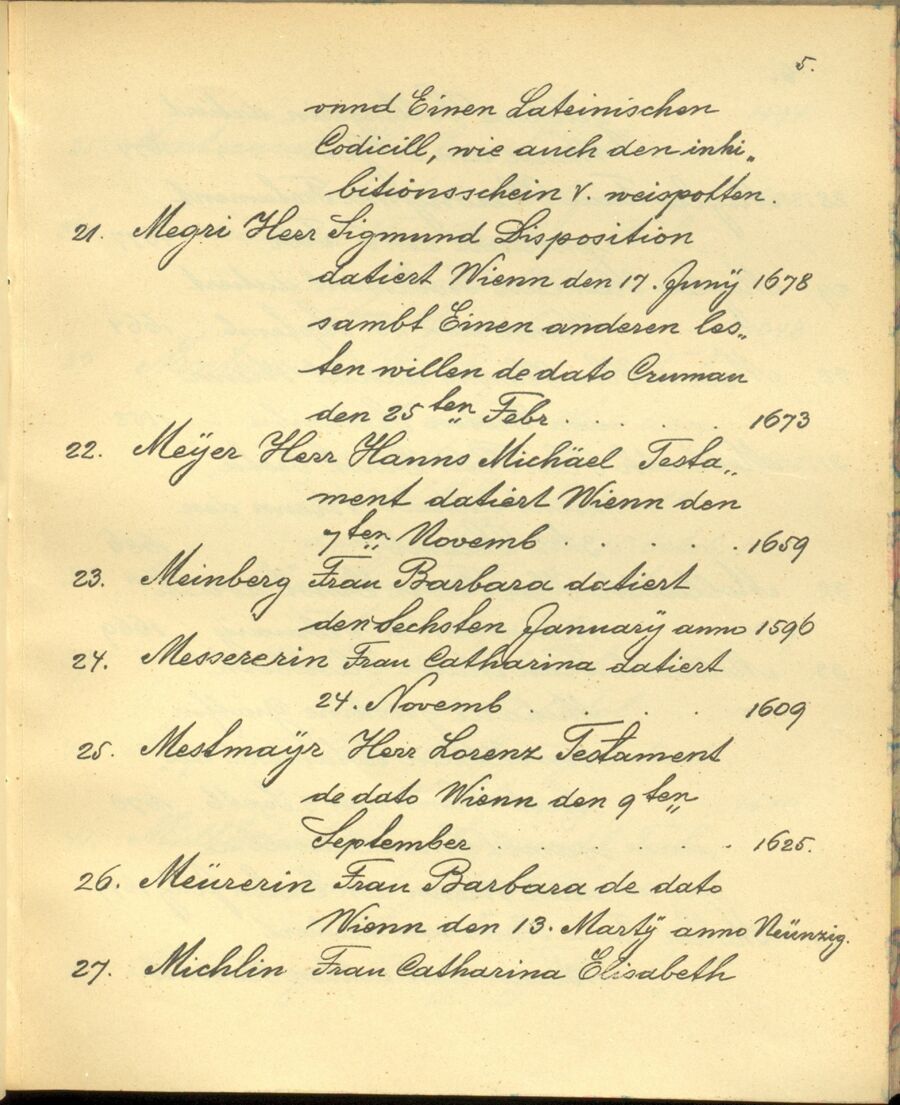 5.
vnnd Einen Lateinischen
Codicill, wie auch den inhi„
bitionsschein v. weispotten.
21. Megri Herr Sigmund Disposition
datiert Wienn den 17. Junÿ 1678
sambt Einen anderen les„
ten willen de dato Crumau
den 25ten Febr . . . . . . 1673
22. Meÿer Herr Hanns Michäel Testa„
ment datiert Wienn den
7ten Novemb . . . . . . 1659
23. Meinberg Frau Barbara datiert
den Sechsten Januarÿ anno 1596
24. Messererin Frau Catharina datiert
24. Novemb . . . . . 1609
25. Mestmaÿr Herr Lorenz Testament
de dato Wienn den 9ten
September . . . . 1625.
26. Meürerin Frau Barbara de dato
Wienn den 13. Martÿ anno Neünzig.
27. Michlin Frau Catharina Elisabeth